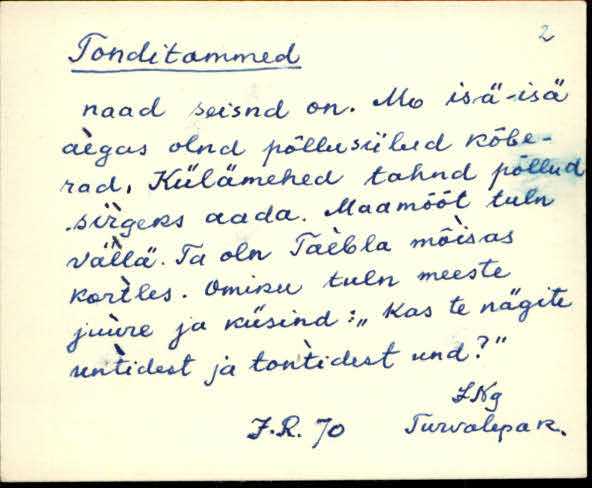 2
Tonditammed
naad seisnd on. Mo isä-isä
aègas olnd põllusiilud kõbe-
rad. Külämehed tahnd põllud
sìrgeks aada. Maamõõt tuln
vällä. Ta oln Taèbla mõisas
kortles. Omiku tuln meeste
juùre ja küsind: „Kas te nägite
untìdest ja tontìdest und?"
LNg
F.R. 70 Turvalepa k.